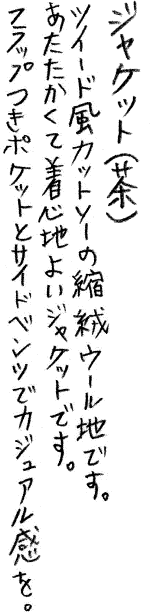 ジャケット(茶)
ツイード風カットソーの縮絨ウール地です。
あたたかくて着心地よいジャケットです。
フラップつきポケットとサイドベンツでカジュアル感を。